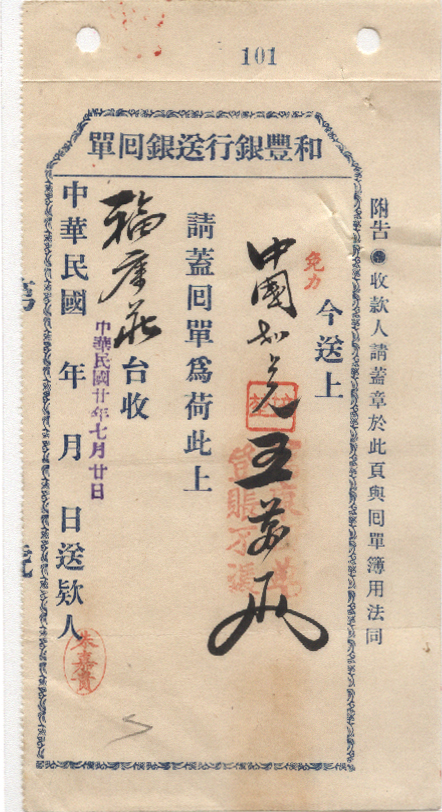 101
和豐銀行送銀回單
附告 收款人請蓋章於此頁與回單簿用法同
今送上
免力
中國 五萬
請蓋回單爲荷此上
福康莊台收
中華民國 年 月 日送欵人
中華民國廿年七月廿日
朱嘉貴